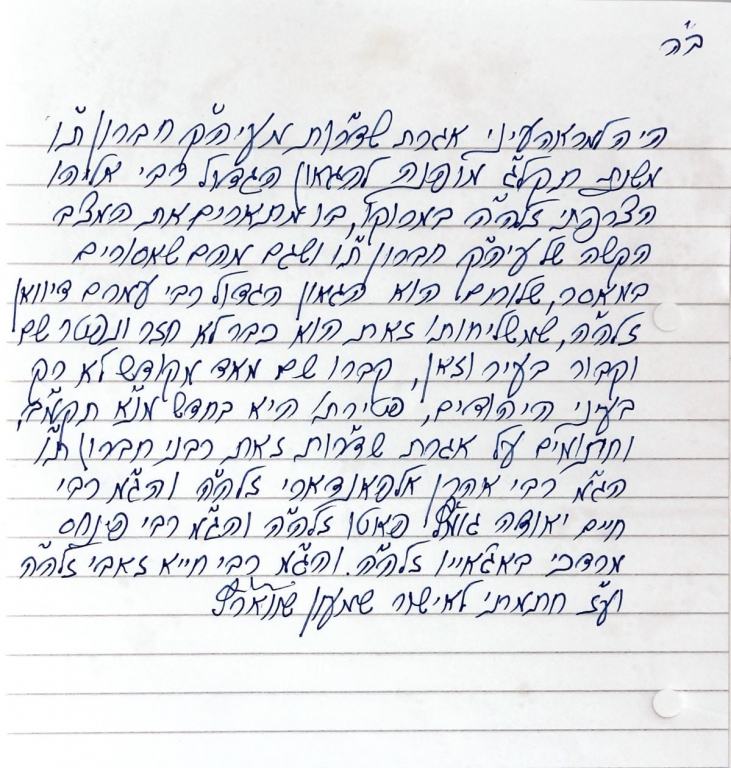 ב"ה
היה למראה עיני אגרת שד"רות מעיה"ק חברון ת"ו
משנת תקל"ג מופנה להגאון הגדול רבי אליהו
הצרפתי זלה"ה במרוקו, בו מתארים את המצב
הקשה של עיה"ק חברון ת"ו ושגם מהם שאסורים
במאסר, שלוחם הוא הגאון הגדול רבי עמרם דיוואן
זלה"ה, שמשליחותו זאת הוא כבר לא חזר ונפטר שם
וקבור בעיר וזאן, קברו שם מאד מקודש לא רק
בעיני היהודים, פטירתו היא בחדש מנ"א תקמ"ב,
וחתומים על אגרת שד"רות זאת רבני חברון ת"ו
הג"מ רבי אהרן אלפאנדארי זלה"ה והג"מ רבי
חיים יאודה גומיץ פאטו זלה"ה והג"מ רבי פינחס
מרדכי באג'אייו זלה"ה. והג"מ רבי חייא זאבי זלה"ה
וע"ז חתמתי לאישור שמעון שווארץ